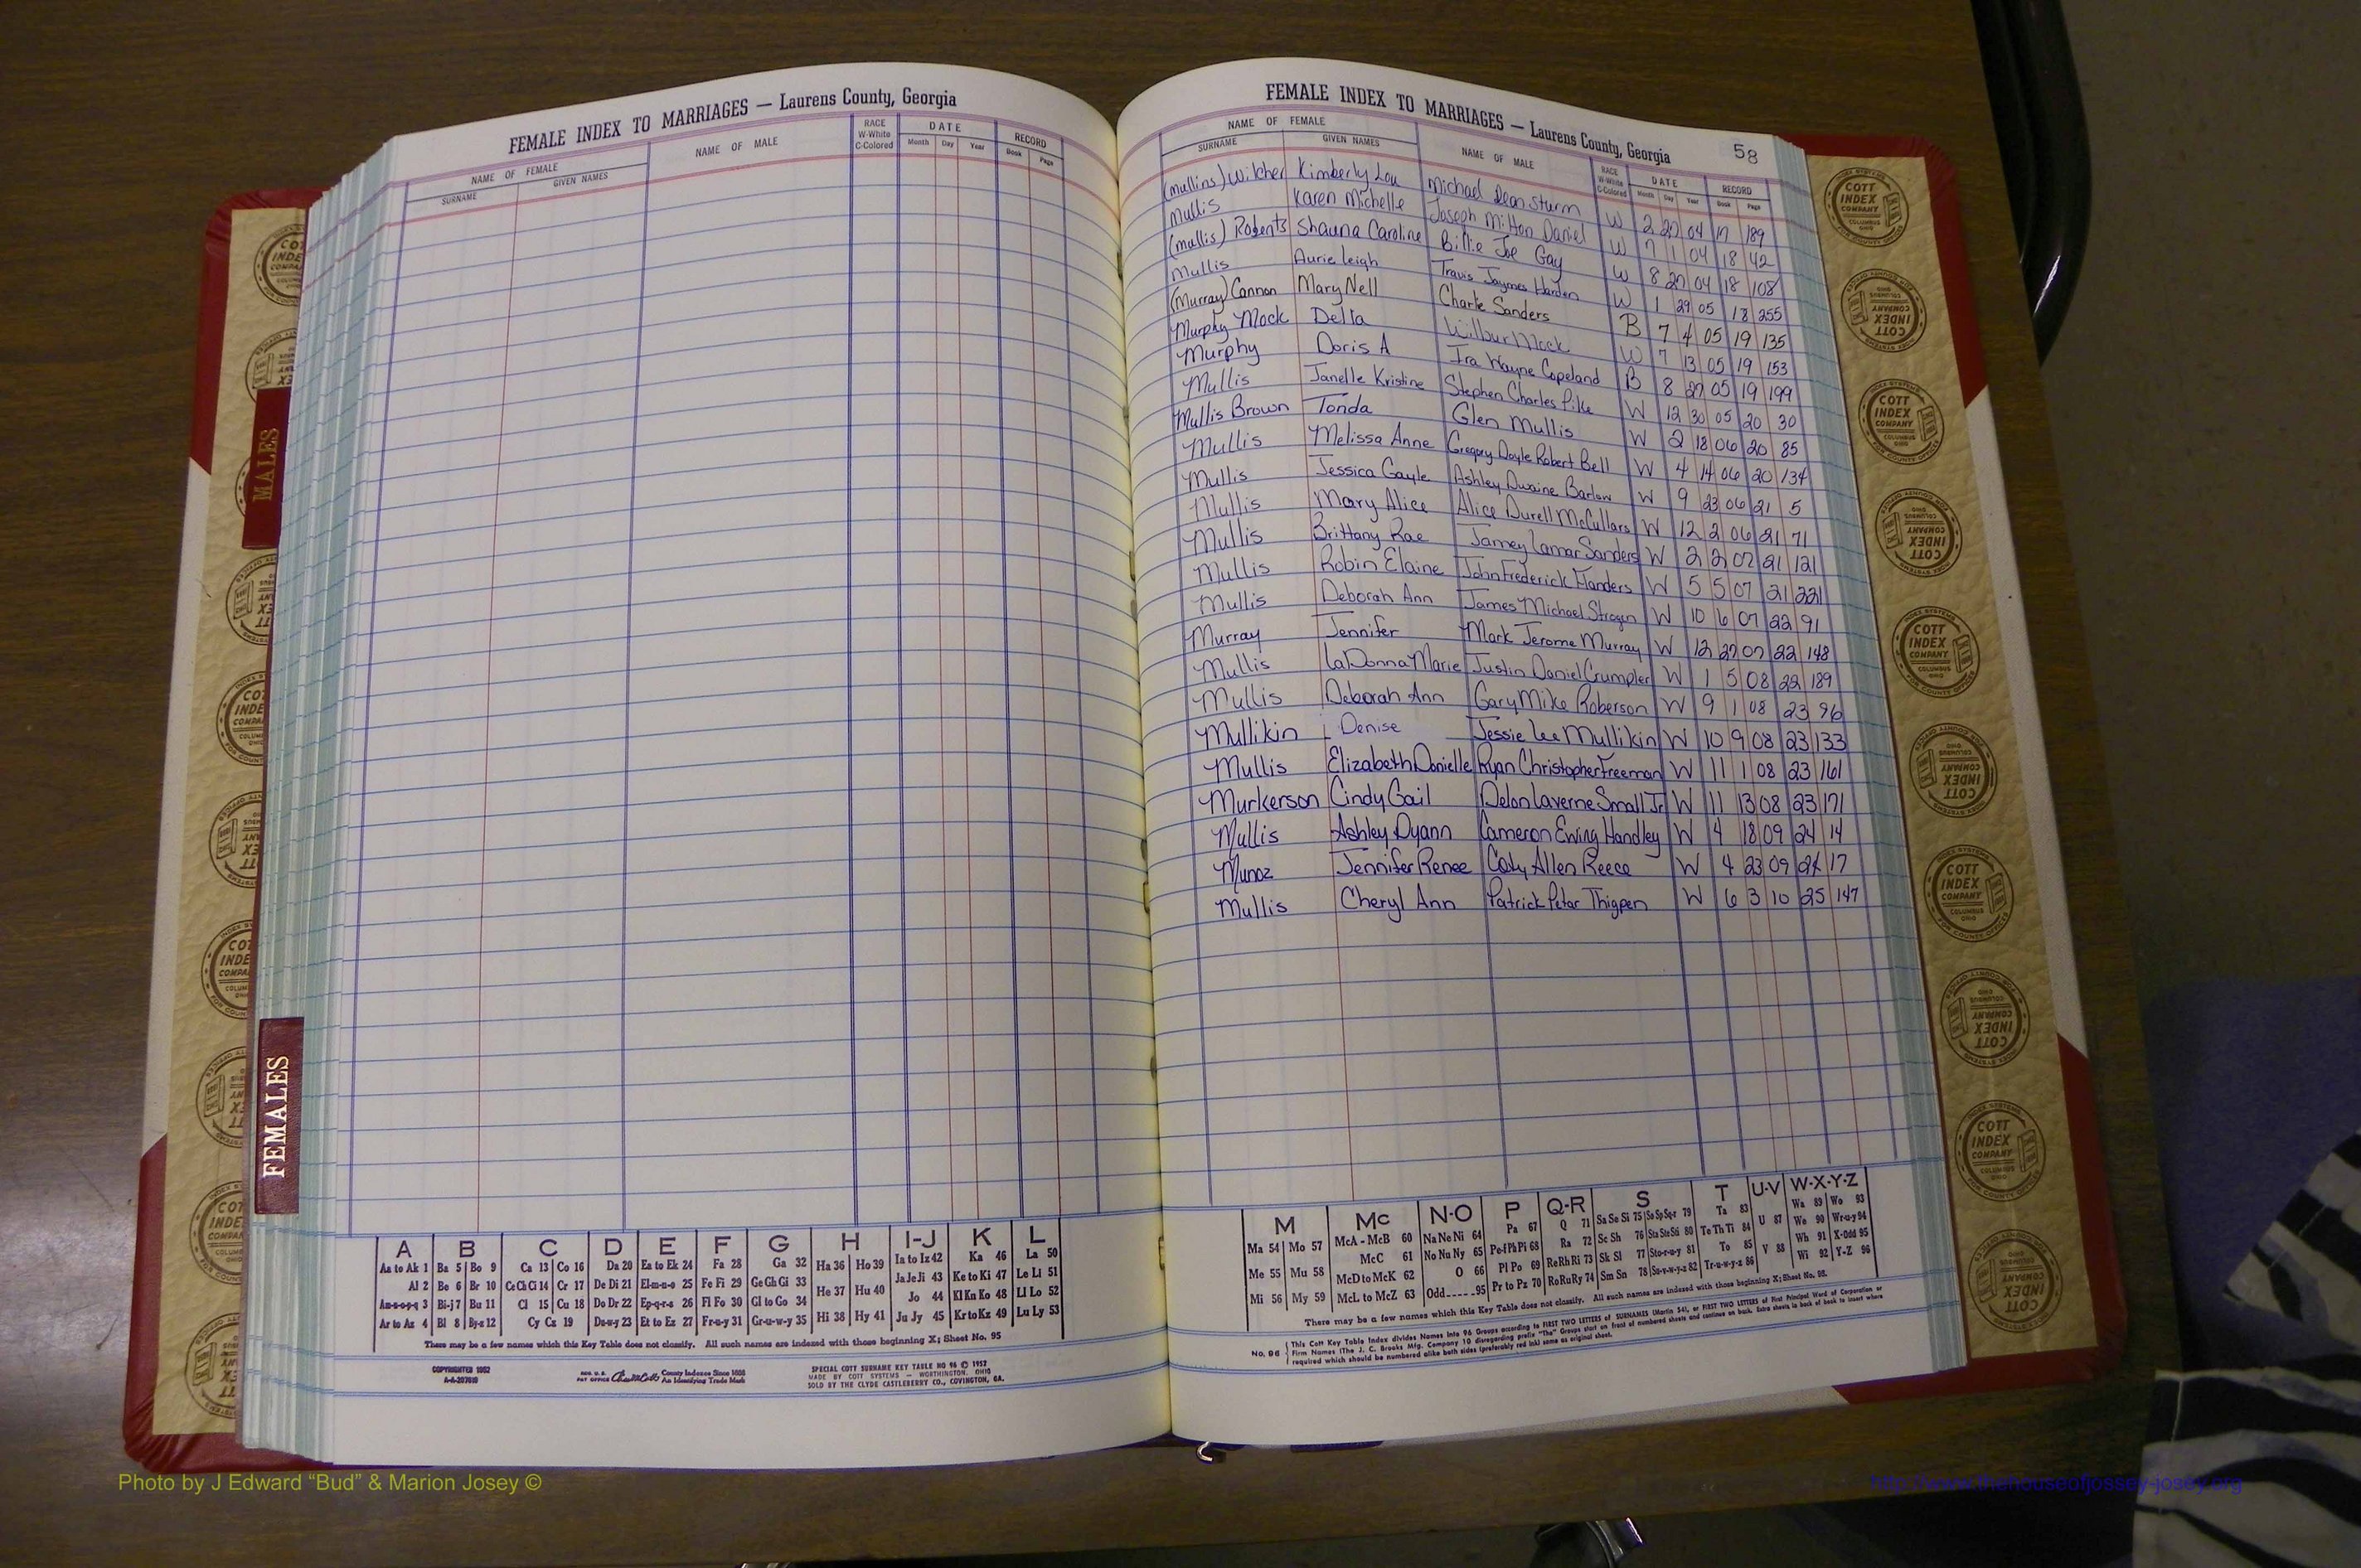 FEMALE INDEX TO MARRIAGES — Laurens County, Georgia
NAME OF FEMALE
SURNAME GIVEN NAMES
NAME OF MALE
RACE
W-White
C-Colored
DATE
Month Day Year
RECORD
Book Page
FEMALE INDEX TO MARRIAGES — Laurens County, Georgia 58
NAME OF FEMALE
SURNAME GIVEN NAMES
NAME OF MALE
RACE
W-White
C-Colored
DATE
Month Day Year
RECORD
Book Page
(Mullins) Wilcher Kimberly Lou Michael Dean Sturm W 2 27 04 17 189
Mullis Karen Michelle Joseph Milton Daniel W 7 1 04 18 42
(Mullis) Roberts Shauna Caroline Billie Joe Gay W 8 27 04 18 108
Mullis Aurie Leigh Travis Jaymes Harden W 1 29 05 18 255
(Murray) Cannon Mary Nell Charlie Sanders B 7 4 05 19 135
Murphy Mock Delta Wilbur Mock W 7 13 05 19 153
Murphy Doris A Ira Wayne Copeland B 8 27 05 19 199
Mullis Janelle Kristine Stephen Charles Pike W 12 30 05 20 30
Mullis Brown Tonda Glen Mullis W 2 18 06 20 85
Mullis Melissa Anne Gregory Doyle Robert Bell W 4 14 06 20 134
Mullis Jessica Gayle Ashley Dwaine Barlow W 9 23 06 21 5
Mullis Mary Alice Alice Durell McCullars W 12 2 06 21 71
Mullis Brittany Rae Jamey Lamar Sanders W 2 2 07 21 121
Mullis Robin Elaine John Frederick Flanders W 5 5 07 21 221
Mullis Deborah Ann James Michael Strogen W 10 6 07 22 91
Murray Jennifer Mark Jerome Murray W 12 27 07 22 148
Mullis LaDonna Marie Justin Daniel Crumpler W 1 5 08 22 189
Mullis Deborah Ann Gary Mike Roberson W 9 1 08 23 96
Mullikin Denise Jessie Lee Mullikin W 10 9 08 23 133
Mullis Elizabeth Danielle Ryan Christopher Freeman W 11 1 08 23 161
Murkerson Cindy Gail Delon Laverne Small Jr W 11 13 08 23 171
Mullis Ashley Dyann Cameron Ewing Handley W 4 18 09 24 14
Munoz Jennifer Renee Cody Allen Reece W 4 23 09 24 17
Mullis Cheryl Ann Patrick Peter Thigpen W 6 3 10 25 147
MALES
FEMALES
COTT
INDEX
COMPANY
COLUMBUS
OHIO
A B C D E F G H I-J K L
Aa to Ak 1 Ba 5 Bo 9 Ca 13 Co 16 Da 20 Ea to Ek 24 Fa 28 Ga 32 Ha 36 Ho 39 Ia to Iz 42 Ka 46 La 50
Al 2 Be 6 Br 10 Ce Ch Ci 14 Cr 17 De Di 21 El-m-n-o 25 Fe Fi 29 Ge Gh Gi 33 He 37 Hu 40 Ja Je Ji 43 Ke to Ki 47 Le Li 51
Am-n-o-p-q 3 Bi-j 7 Bu 11 Cl 15 Cu 18 Do Dr 22 Ep-q-r-s 26 Fl Fo 30 Gl to Go 34 Jo 44 Kl Kn Ko 48 Ll Lo 52
Ar to Az 4 Bl 8 By-z 12 Cy Cz 19 Du-w-y 23 Et to Ez 27 Fr-u-y 31 Gr-u-w-y 35 Hi 38 Hy 41 Ju Jy 45 Kr to Kz 49 Lu Ly 53
There may be a few names which this Key Table does not classify. All such names are indexed with those beginning X; Sheet No. 95
COPYRIGHTED 1952
REG. U.S. PAT OFFICE County Indexes Since 1888
An Identifying Trade Mark
SPECIAL COTT SURNAME KEY TABLE NO 96 © 1957
MADE BY COTT SYSTEMS — WORTHINGTON, OHIO
SOLD BY THE CLYDE CASTLEBERRY CO., COVINGTON, GA.
M Mc N-O P Q-R S T U-V W-X-Y-Z
Ma 54 Mo 57 McA - McB 60 Na Ne Ni 64 Pa 67 Q 71 Sa Se Si 75 So Sp Sq-r 79 Ta 83 Wa 89 Wo 93
Me 55 Mu 58 McC 61 No Nu Ny 65 Pe-f Ph Pi 68 Ra 72 Sc Sh 76 Sta Ste Sti 80 Te Th Ti 84 U 87 We 90 Wr-u-y 94
McD to McK 62 O 66 Pl Po 69 Re Rh Ri 73 Sk Sl 77 Sto-r-u-y 81 To 85 V 88 Wh 91 X-Odd 95
Mi 56 My 59 McL to McZ 63 Odd 95 Pr to Pz 70 Ro Ru Ry 74 Sm Sn 78 Su-v-w-y-z 82 Tr-u-w-y-z 86 Wi 92 Y-Z 96
There may be a few names which this Key Table does not classify. All such names are indexed with those beginning X; Sheet No. 95.
No. 96 This Cott Key Table Index divides Names into 96 Groups according to FIRST TWO LETTERS of SURNAMES (Martin 54), or FIRST TWO LETTERS of First Principal Word of Corporation or
Firm Names (The J. C. Brooks Mfg. Company 10 disregarding prefix "The" Groups start on front of numbered sheets and continue on back. Extra sheets in back of book to insert where
required which should be numbered alike both sides (preferably red ink) same as original sheet.
Photo by J Edward “Bud” & Marion Josey ©
http://www.thehouseofjossey-josey.org